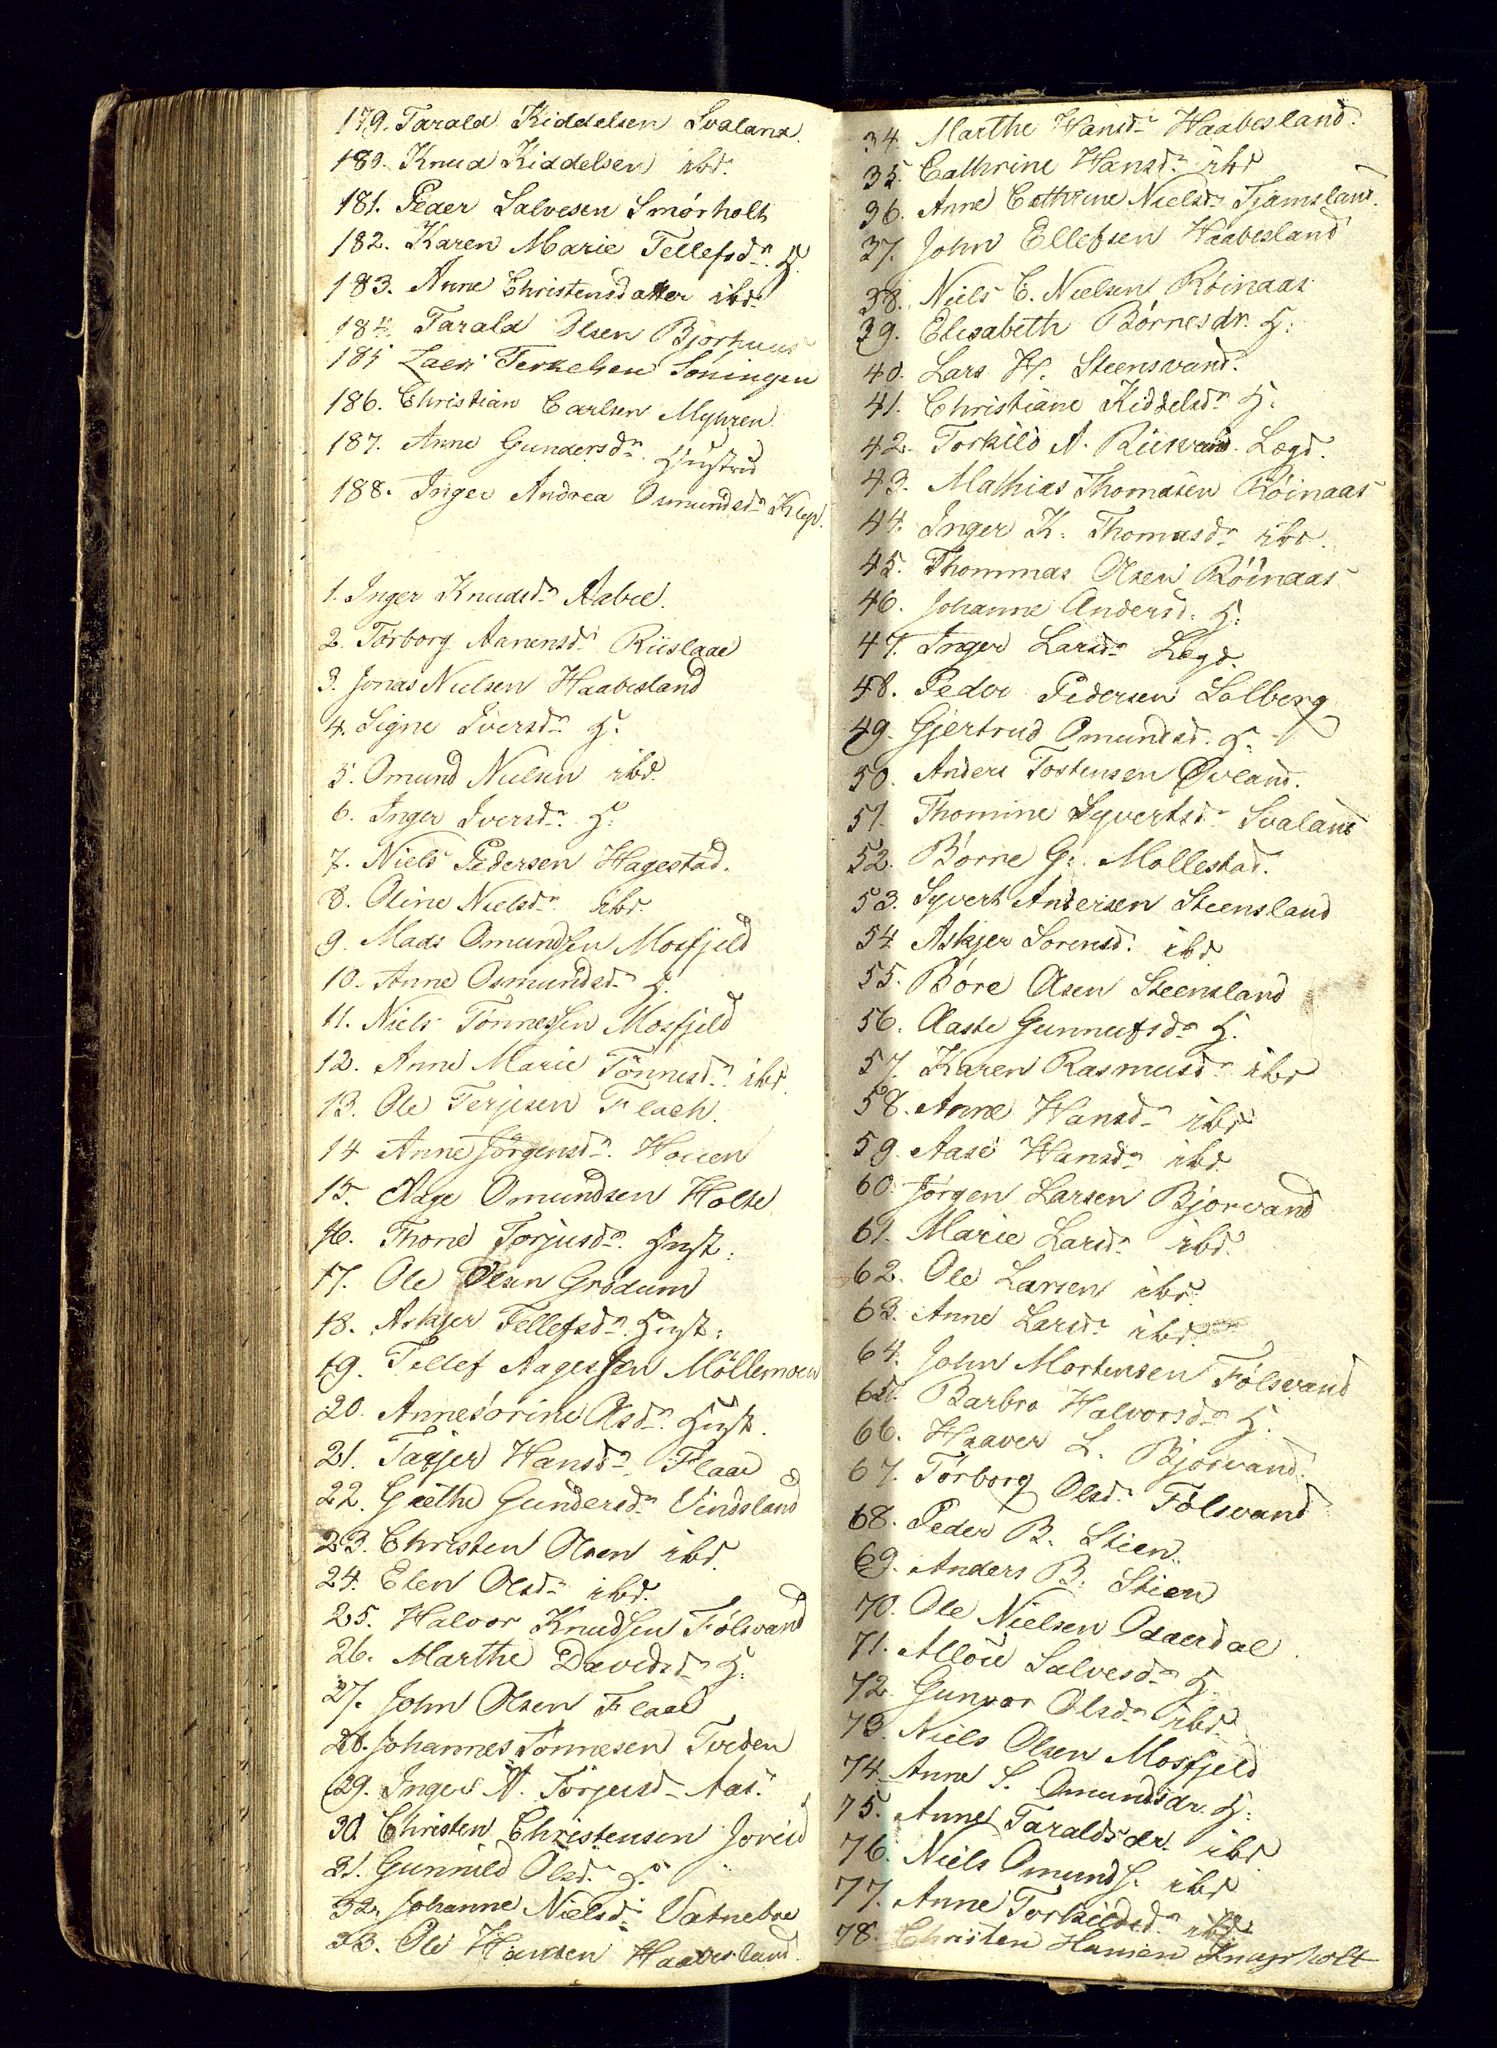 179. Tarald Kiddelsen Svaland
180. Knud Kiddelsen ibd.
181. Peder Salvesen Smørholt
182. Karen Marie Tellefsdn. H.
183. Anne Christensdatter ibd.
184. Tarald Olsen Bjorhuus
185 Terkelsen Søningen
186. Christian Carlsen Myhren
187. Anne Gundersdn. Hustrue
188. Inger Andrea Osmundsdn. Klep.
1. Inger Knudsdn. Aabol.
2. Torborg Aanensdn. Riislaae
3. Jonas Nielsen Haabesland
4. Signe Iversdn. H.
5. Omund Nielsen ibd.
6. Inger Iversdn. H.
7. Niels Pedersen Hagestad.
8. Oline Nielsdn. ibd.
9. Mads Omundsen Mosfjeld
10. Anne Osmundsdn. H.
11. Niels Tønnessen Mosfjeld
12. Anne Marie Tønnesdn. ibd.
13. Ole Terjesen Flach.
14 Anne Jørgensdn. Houen
15. Aage Omundsen Holte
16. Thone Torjusdn. Hust:
17. Ole Olsen Grødum
18. Askjer Tellefsdn. Hust:
19. Tellef Aagessen Möllemoen
20. Annesørine Olsdn. Hust.
21. Tagjer Hansdn. Flaae
22. Grethe Gundersdn. Vindsland
23. Christen Olsen ibd.
24. Elen Olsdn. ibd.
25. Halvor Knudsen Følsvand
26. Marthe Davidsdn. H.
27. John Olsen Flaae
28. Johannes Tønnesen Tveden
29. Inger N. Törjusdn. Aas.
30. Christen Christensen Joreid
31. Gunnild Olsd. H.
32. Johanne Nielsdn. Vatneboe
33. Ole Hansen Haabesland.
34. Marthe Hansdn. Haabesland.
35. Cathrine Hansdn. ibd
36. Anne Cathrine Nielsdn. Tjamsland.
37. John Ellefsen Haabesland
38. Niels C. Nielsen Röinaas
39. Elisabeth Børnesdr. H:
40. Lars H. Steensvand.
41. Christiane Kiddelsdn. H.
42. Torkild A. Riisvand. Lægd.
43. Mathias Thomasen Röinaas
44. Inger K. Thomasdn. ibd.
45. Thommas Olsen Röinaas
46. Johanne Andersd. H:
47. Inger Larsdn. Lægd.
48. Peder Pedersen Solberg
49. Gjertrud Omundsd. H.
50. Anders Tostensen Øvland.
51. Thomine Syvertsdn. Svaland
52. Børne G. Mollestad.
53. Syvert Andersen Steensland
54. Askjer Sorensd. ibd
55. Børe Olsen Steensland
56. Aaste Gunnufsdn. H.
57. Karen Rasmusdn. ibd
58. Anne Hansdn. ibd
59. Aase Hansdn. ibd
60. Jørgen Larsen Bjorvand
61. Marie Larsdn. ibd.
62. Ole Larsen ibd.
63. Anne Larsdn. ibd.
64. John Mortensen Følsvand
65. Barbro Halvorsdn. H.
66. Haaver L. Bjorvand.
67. Törborg Olsd. Følsvand
68. Peder B. Stien.
69. Anders B. Stien
70. Ole Nielsen Odderdal
71. Allou Salvesdn. H.
72. Gunvor Olsdn. ibd.
73. Niels Olsen Mosfjeld
74. Anne S. Omundsdr. H:
75. Anne Taraldsdr. ibd.
76. Niels Omunds. ibd
77. Anne Torkildsdn. ibd
78. Christen Hansen Knapholt